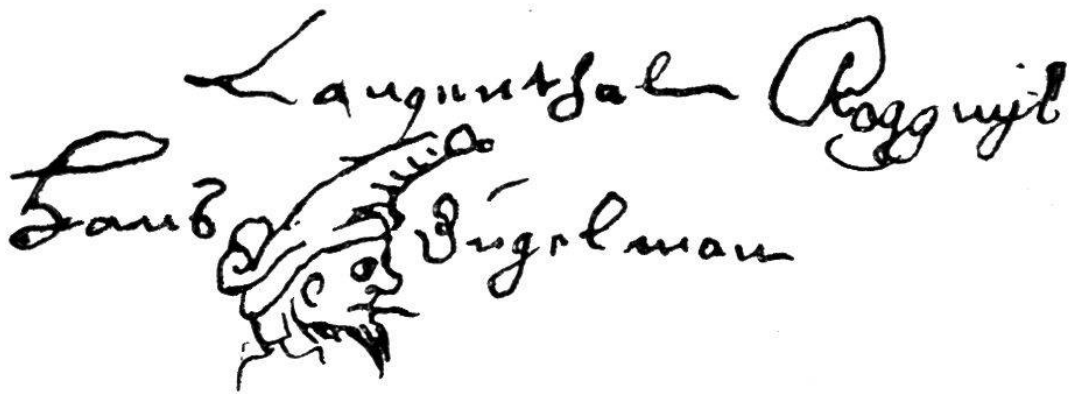 Langenthal Roggwijl
Hans Zugelman